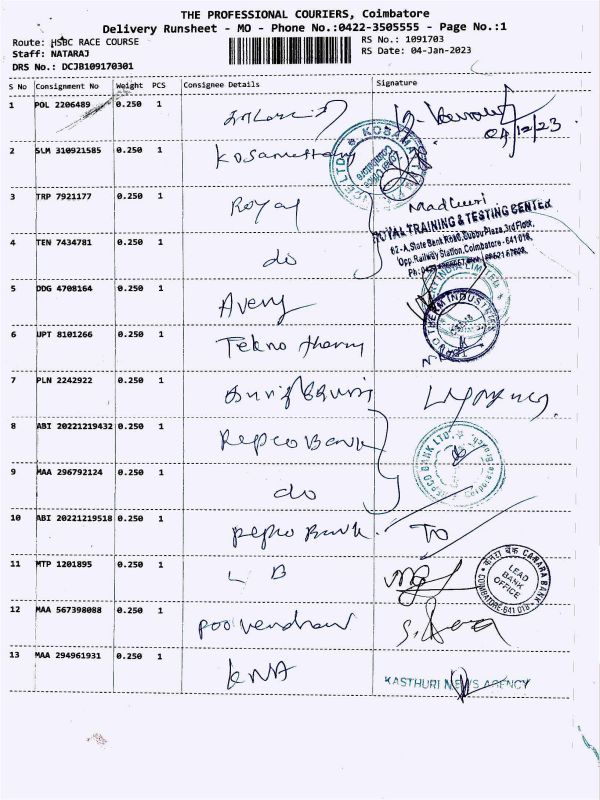 THE PROFESSIONAL COURIERS, Coimbatore
Delivery Runsheet - MO - Phone No.:0422-3505555 - Page No.:1
Route: HSBC RACE COURSE
RS No.: 1091703
Staff: NATARAJ
RS Date: 04-Jan-2023
DRS No.: DCJB109170301
S No Consignment No Weight PCS Consignee Details Signature
1 POL 2206489 0.250 1
04/12/23
2 SLM 310921585 0.250 1 Kosamattam
KOSAMATTAM
3 TRP 7921177 0.250 1 Royal Madhuri
ROYAL TRAINING & TESTING CENTER
62-A, State Bank Road, Dubbu Plaza, 3rd Floor,
Opp. Railway Station, Coimbatore - 641 018.
4 TEN 7434781 0.250 1 do
5 DDG 4708164 0.250 1 Avery
INDIA LIMITED
6 UPT 8101266 0.250 1 Tekno therm
THERM INDUSTRIES
7 PLN 2242922 0.250 1
8 ABI 20221219432 0.250 1 Repco Bank
REPCO BANK LTD.
9 MAA 296792124 0.250 1 do
10 ABI 20221219518 0.250 1 Repco Bank. TO
11 MTP 1201895 0.250 1 L B
केनरा बैंक CANARA BANK
LEAD
BANK
OFFICE
COIMBATORE-641 018
12 MAA 567398088 0.250 1
13 MAA 294961931 0.250 1 KNA
KASTHURI NEWS AGENCY